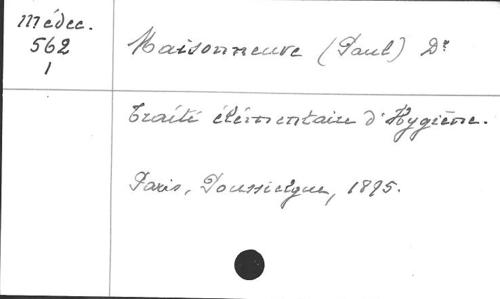 Médec.
562
1
Maisonneuve (Paul) Dr
Traité élémentaire d'Hygiène.
Paris, Poussielgue, 1895.